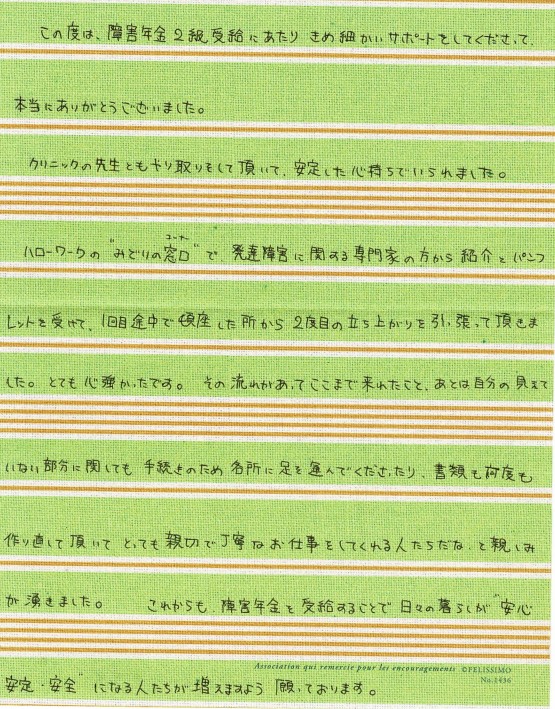 この度は、障害年金2級受給にあたり きめ細かいサポートをしてくださって、
本当にありがとうございました。
クリニックの先生ともやり取りをして頂いて、安定した心持ちでいられました。
コーナー
ハローワークの“みどりの窓口”で、発達障害に関する専門家の方から紹介とパンフ
レットを受けて、1回目途中で頓座した所から2度目の立ち上がりを引っ張って頂きま
した。とても心強かったです。その流れがあってここまで来れたこと、あとは自分の見えて
いない部分に関しても 手続きのため各所に足を運んでくださったり、書類も何度も
作り直して頂いて とっても親切で丁寧なお仕事をしてくれる人たちだな、と親しみ
が湧きました。 これからも、障害年金を受給することで日々の暮らしが“安心
Association qui remercie pour les encouragements ©FELISSIMO
No.1436
安定・安全”になる人たちが増えますよう願っております。